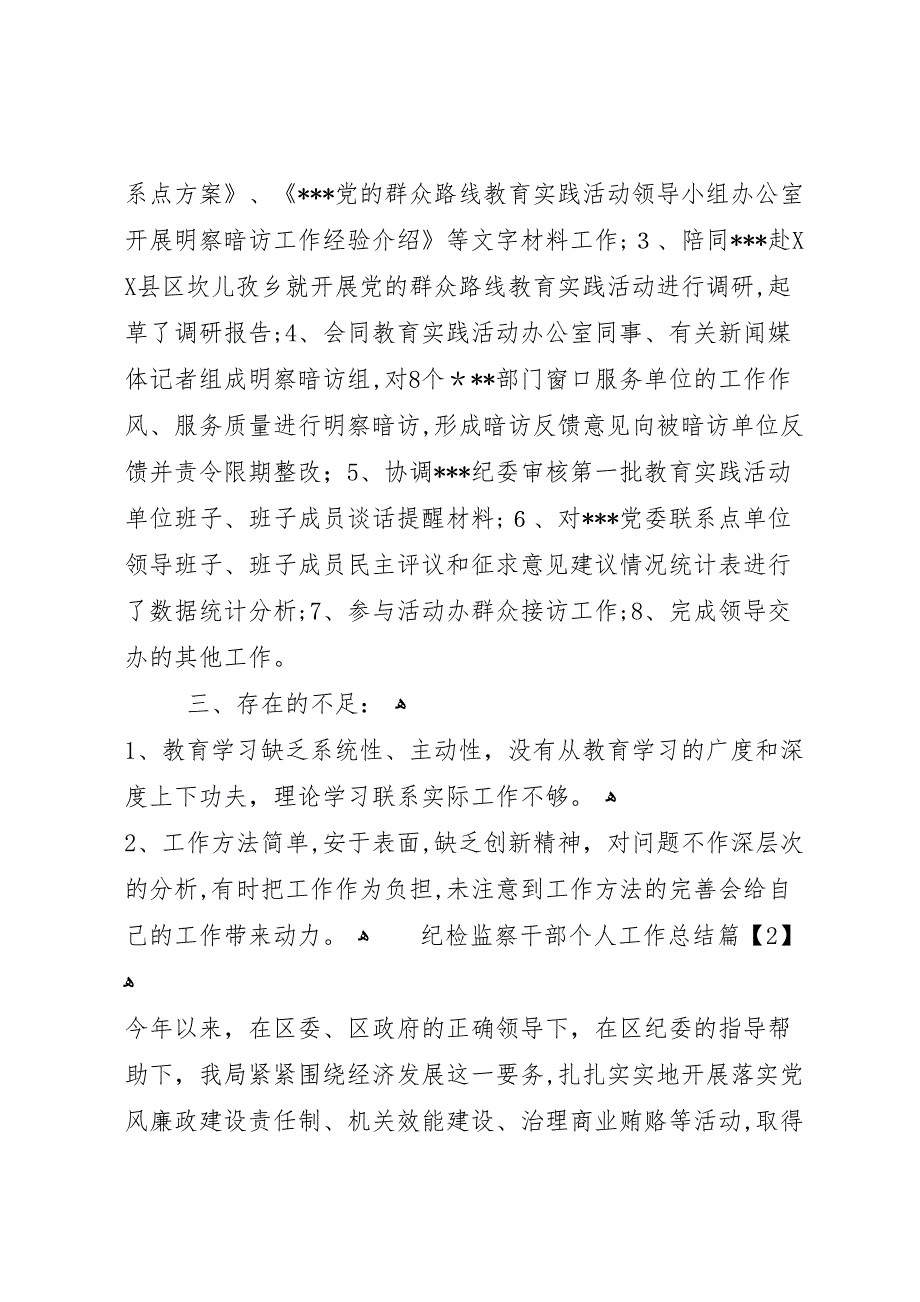 系点方案》、《***党的群众路线教育实践活动领导小组办公室
开展明察暗访工作经验介绍》等文字材料工作;３、陪同***赴X
X县区坎儿孜乡就开展党的群众路线教育实践活动进行调研,起
草了调研报告;4、会同教育实践活动办公室同事、有关新闻媒
体记者组成明察暗访组,对8个＊**部门窗口服务单位的工作作
风、服务质量进行明察暗访,形成暗访反馈意见向被暗访单位反
馈并责令限期整改；5、协调***纪委审核第一批教育实践活动
单位班子、班子成员谈话提醒材料;６、对***党委联系点单位
领导班子、班子成员民主评议和征求意见建议情况统计表进行
了数据统计分析;7、参与活动办群众接访工作;8、完成领导交
办的其他工作。
三、存在的不足： ﻫ
1、教育学习缺乏系统性、主动性，没有从教育学习的广度和深
度上下功夫，理论学习联系实际工作不够。 ﻫ
2、工作方法简单,安于表面,缺乏创新精神，对问题不作深层次
的分析,有时把工作作为负担,未注意到工作方法的完善会给自
己的工作带来动力。 ﻫ 纪检监察干部个人工作总结篇【2】
ﻫ
今年以来，在区委、区政府的正确领导下，在区纪委的指导帮
助下，我局紧紧围绕经济发展这一要务,扎扎实实地开展落实党
风廉政建设责任制、机关效能建设、治理商业贿赂等活动,取得